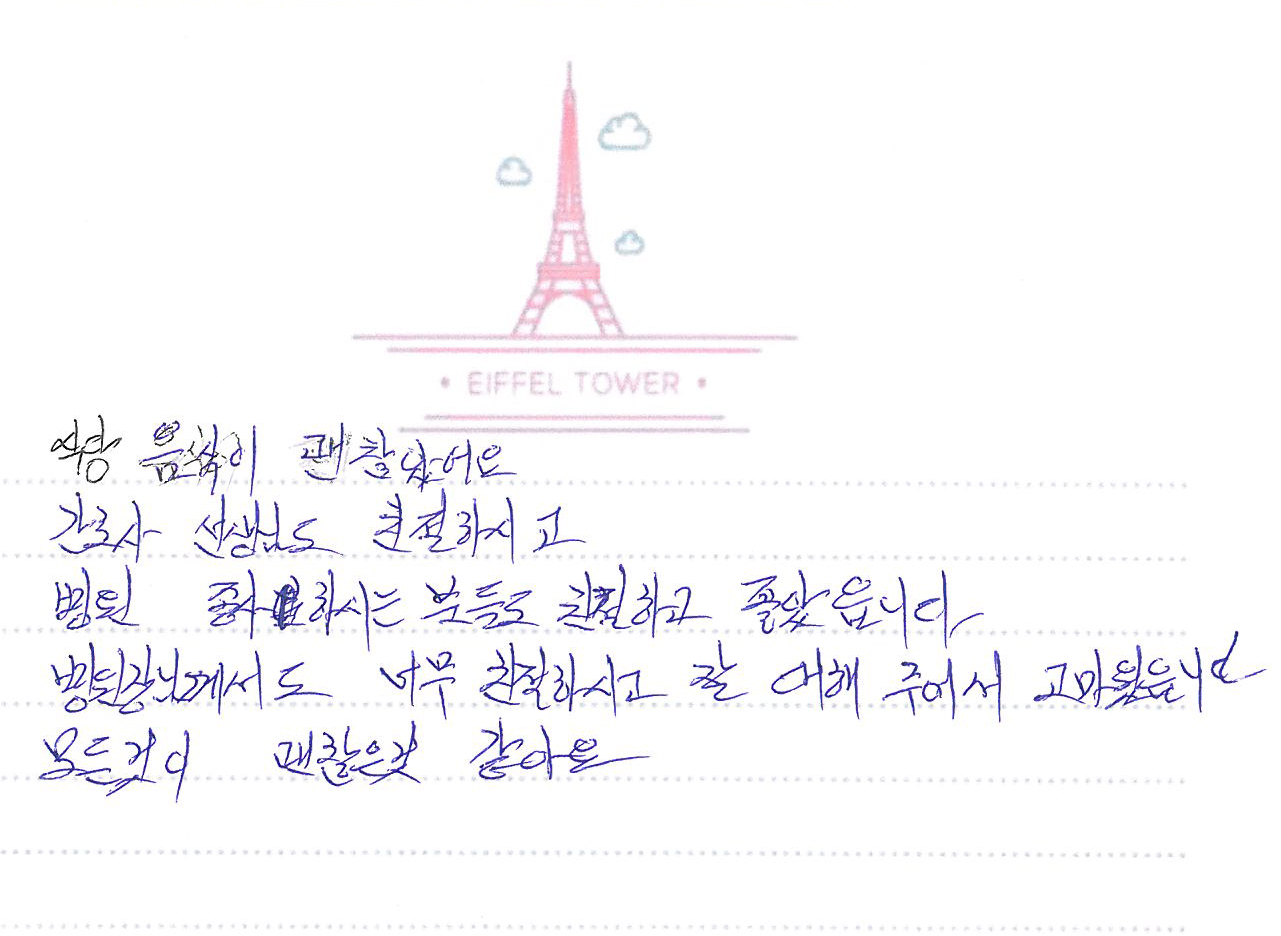 • EIFFEL TOWER •
식당 음식이 괜찮았어요
간호사 선생님도 친절하시고
병원 종사하시는 분들도 친절하고 좋았읍니다
병원장님께서도 너무 친절하시고 잘 대해 주어서 고마웠읍니다
모든것이 괜찮은것 같아요